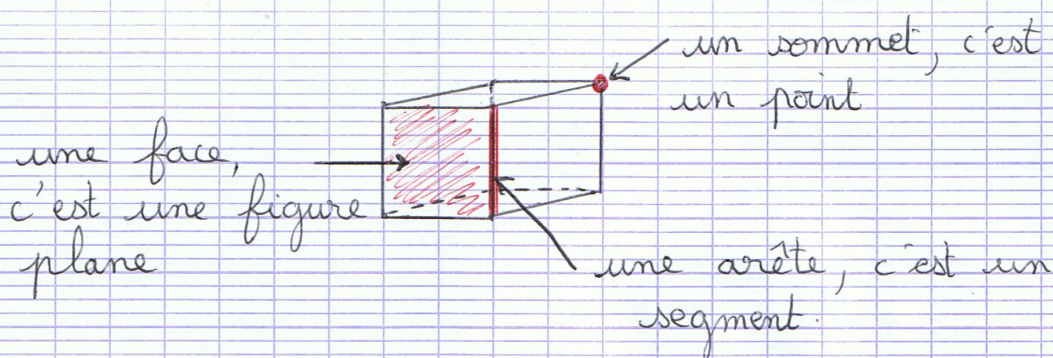 un sommet, c'est
un point
une face,
c'est une figure
plane
une arête, c'est un
segment.